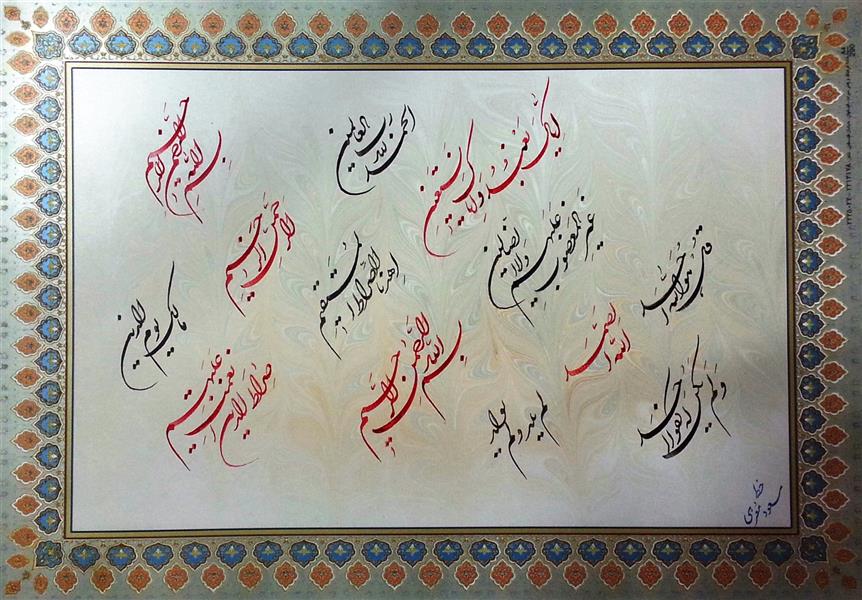 بسم الله الرحمن الرحیم
الحمد لله رب العالمین
الرحمن الرحیم
مالک یوم الدین
ایاک نعبد و ایاک نستعین
اهدنا الصراط المستقیم
صراط الذین انعمت علیهم
غیر المغضوب علیهم ولا الضالین
بسم الله الرحمن الرحیم
قل هو الله احد
الله الصمد
لم یلد ولم یولد
ولم یکن له کفوا احد
خط
مسعود